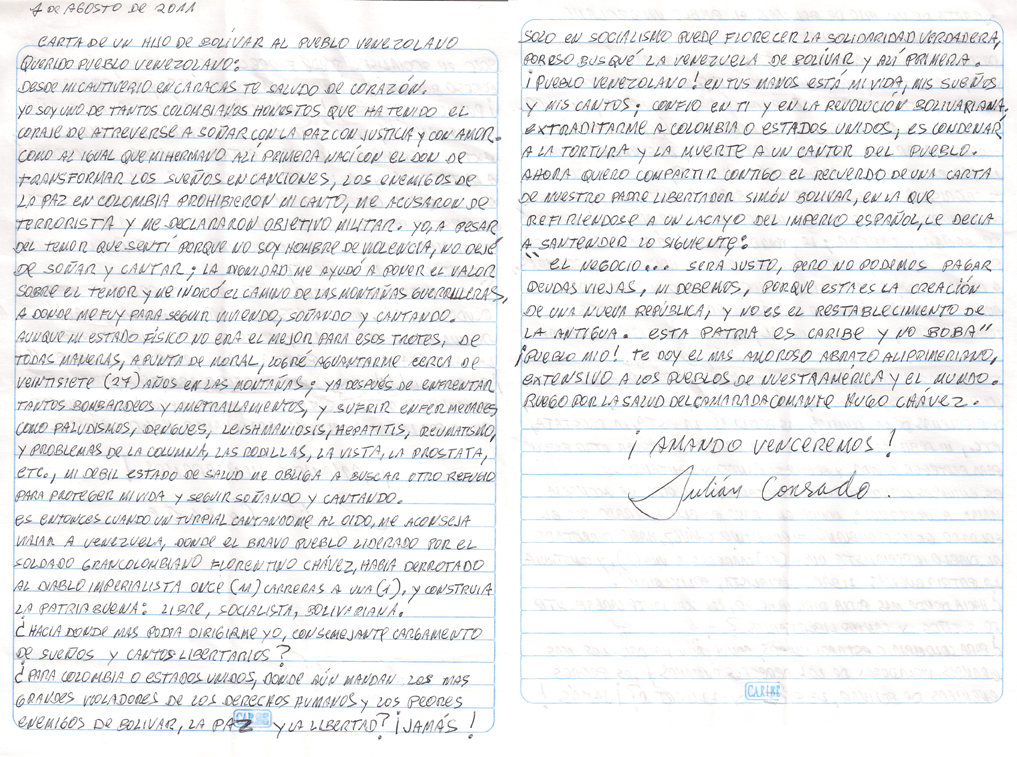 4 DE AGOSTO DE 2011
CARTA DE UN HIJO DE BOLÍVAR AL PUEBLO VENEZOLANO
QUERIDO PUEBLO VENEZOLANO:
DESDE MI CAUTIVERIO EN CARACAS TE SALUDO DE CORAZÓN.
YO SOY UNO DE TANTOS COLOMBIANOS HONESTOS QUE HA TENIDO EL
CORAJE DE ATREVERSE A SOÑAR CON LA PAZ CON JUSTICIA Y CON AMOR.
COMO AL IGUAL QUE MI HERMANO ALÍ PRIMERA NACÍ CON EL DON DE
TRANSFORMAR LOS SUEÑOS EN CANCIONES, LOS ENEMIGOS DE
LA PAZ EN COLOMBIA PROHIBIERON MI CANTO, ME ACUSARON DE
TERRORISTA Y ME DECLARARON OBJETIVO MILITAR. YO, A PESAR
DEL TEMOR QUE SENTÍ PORQUE NO SOY HOMBRE DE VIOLENCIA, NO DEJÉ
DE SOÑAR Y CANTAR; LA DIGNIDAD ME AYUDÓ A PONER EL VALOR
SOBRE EL TEMOR Y ME INDICÓ EL CAMINO DE LAS MONTAÑAS GUERRILLERAS,
A DONDE ME FUY PARA SEGUIR VIVIENDO, SOÑANDO Y CANTANDO.
AUNQUE MI ESTADO FÍSICO NO ERA EL MEJOR PARA ESOS TROTES, DE
TODAS MANERAS, A PUNTA DE MORAL, LOGRÉ AGUANTARME CERCA DE
VEINTISIETE (27) AÑOS EN LAS MONTAÑAS; YA DESPUÉS DE ENFRENTAR
TANTOS BOMBARDEOS Y AMETRALLAMIENTOS, Y SUFRIR ENFERMEDADES
COMO PALUDISMOS, DENGUES, LEISHMANIOSIS, HEPATITIS, REUMATISMO,
Y PROBLEMAS DE LA COLUMNA, LAS RODILLAS, LA VISTA, LA PROSTATA,
ETC., MI DEBIL ESTADO DE SALUD ME OBLIGA A BUSCAR OTRO REFUGIO
PARA PROTEGER MI VIDA Y SEGUIR SOÑANDO Y CANTANDO.
ES ENTONCES CUANDO UN TURPIAL CANTANDOME AL OIDO, ME ACONSEJA
VIAJAR A VENEZUELA, DONDE EL BRAVO PUEBLO LIDERADO POR EL
SOLDADO GRANCOLOMBIANO FLORENTINO CHÁVEZ, HABIA DERROTADO
AL DIABLO IMPERIALISTA ONCE (11) CARRERAS A UNA (1), Y CONSTRUIA
LA PATRIA BUENA: LIBRE, SOCIALISTA, BOLIVARIANA.
¿HACIA DONDE MAS PODIA DIRIGIRME YO, CON SEMEJANTE CARGAMENTO
DE SUEÑOS Y CANTOS LIBERTARIOS?
¿PARA COLOMBIA O ESTADOS UNIDOS, DONDE AÚN MANDAN LOS MAS
GRANDES VIOLADORES DE LOS DERECHOS HUMANOS Y LOS PEORES
ENEMIGOS DE BOLIVAR, LA PAZ Y LA LIBERTAD? ¡JAMÁS!
CARIBE
SOLO EN SOCIALISMO PUEDE FLORECER LA SOLIDARIDAD VERDADERA,
POR ESO BUSQUÉ LA VENEZUELA DE BOLÍVAR Y ALÍ PRIMERA.
¡PUEBLO VENEZOLANO! EN TUS MANOS ESTÁ MI VIDA, MIS SUEÑOS
Y MIS CANTOS; CONFIO EN TI Y EN LA REVOLUCION BOLIVARIANA.
EXTRADITARME A COLOMBIA O ESTADOS UNIDOS, ES CONDENAR
A LA TORTURA Y LA MUERTE A UN CANTOR DEL PUEBLO.
AHORA QUIERO COMPARTIR CONTIGO EL RECUERDO DE UNA CARTA
DE NUESTRO PADRE LIBERTADOR SIMÓN BOLIVAR, EN LA QUE
REFIRIENDOSE A UN LACAYO DEL IMPERIO ESPAÑOL, LE DECIA
A SANTENDER LO SIGUIENTE:
"EL NEGOCIO... SERA JUSTO, PERO NO PODEMOS PAGAR
DEUDAS VIEJAS, NI DEBEMOS, PORQUE ESTA ES LA CREACIÓN
DE UNA NUEVA REPÚBLICA, Y NO ES EL RESTABLECIMIENTO DE
LA ANTIGUA. ESTA PATRIA ES CARIBE Y NO BOBA"
¡PUEBLO MIO! TE DOY EL MAS AMOROSO ABRAZO ALIPRIMERIANO,
EXTENSIVO A LOS PUEBLOS DE NUESTRA AMÉRICA Y EL MUNDO.
RUEGO POR LA SALUD DEL CAMARADA COMANTE HUGO CHÁVEZ.
¡AMANDO VENCEREMOS!
Julián Conrado.
CARIBE